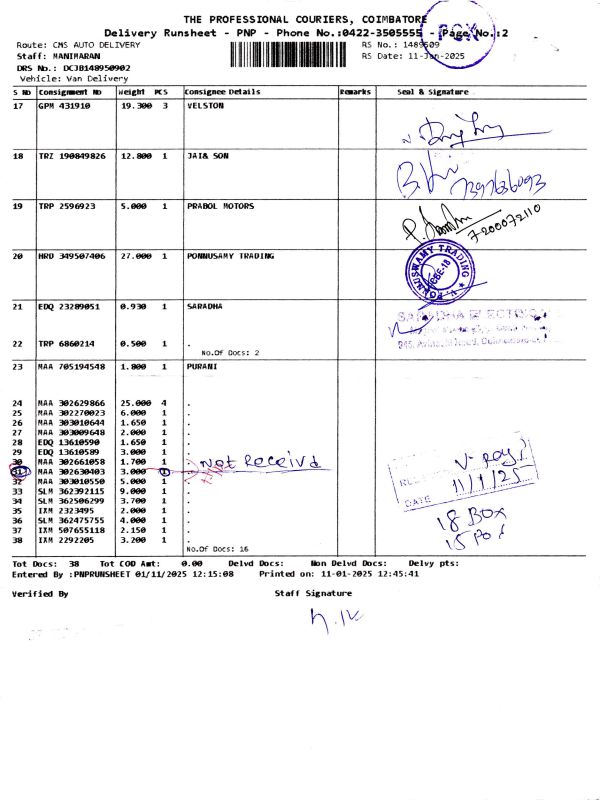 THE PROFESSIONAL COURIERS, COIMBATORE
Delivery Runsheet - PNP - Phone No.:0422-3505555 - Page No.:2
Route: CMS AUTO DELIVERY
RS No.: 1489509
Staff: MANIMARAN
RS Date: 11-Jan-2025
DRS No.: DCJB148950902
Vehicle: Van Delivery
S No Consignment No Weight PCS Consignee Details Remarks Seal & Signature
17 GPM 431910 19.300 3 VELSTON
18 TRZ 190849826 12.800 1 JAI& SON
7397636093
19 TRP 2596923 5.000 1 PRABOL MOTORS
7200072110
20 HRD 349507406 27.000 1 PONNUSAMY TRADING
PONNUSWAMY TRADING
CBE-18
21 EDQ 23289051 0.930 1 SARADHA
SARADHA
22 TRP 6860214 0.500 1 .
No.Of Docs: 2
23 MAA 705194548 1.800 1 PURANI
24 MAA 302629866 25.000 4 .
25 MAA 302270023 6.000 1 .
26 MAA 303010644 1.650 1 .
27 MAA 303009648 2.000 1 .
28 EDQ 13610590 1.650 1 .
29 EDQ 13610589 3.000 1 .
30 MAA 302661058 1.700 1 .
31 MAA 302630403 3.000 1 . Not Receivd
32 MAA 303010550 5.000 1 .
33 SLM 362392115 9.000 1 .
34 SLM 362506299 3.700 1 .
35 IXM 2323495 2.000 1 .
36 SLM 362475755 4.000 1 .
37 IXM 507655118 2.150 1 .
38 IXM 2292205 3.200 1 .
No.Of Docs: 16
DATE 11/1/25
18 BOX
Tot Docs: 38 Tot COD Amt: 0.00 Delvd Docs: Non Delvd Docs: Delvy pts:
Entered By :PNPRUNSHEET 01/11/2025 12:15:08 Printed on: 11-01-2025 12:45:41
Verified By Staff Signature